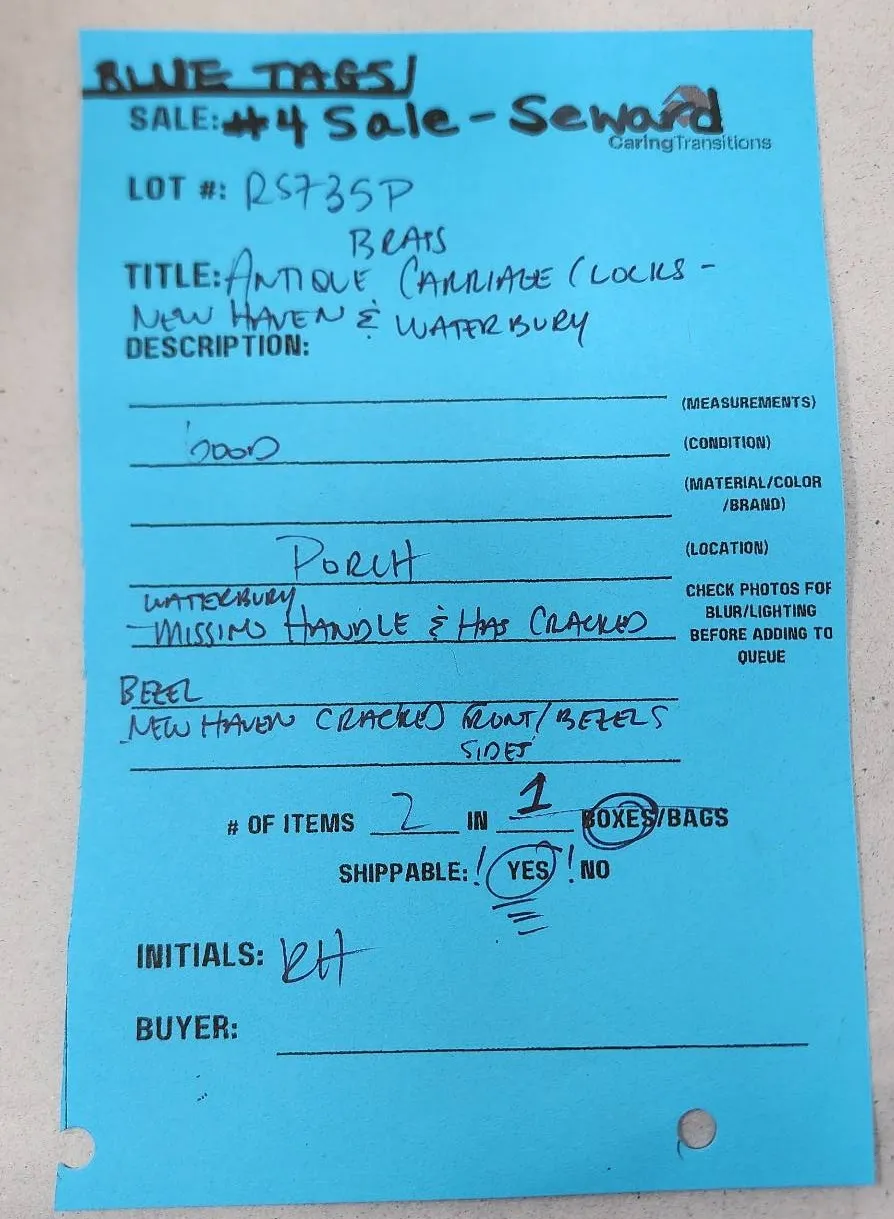 BLUE TAGS/
SALE: #4 Sale - Seward
CaringTransitions
LOT #: RS735P
BRASS
TITLE: ANTIQUE CARRIAGE CLOCKS -
NEW HAVEN & WATERBURY
DESCRIPTION:
(MEASUREMENTS)
GOOD (CONDITION)
(MATERIAL/COLOR
/BRAND)
PORCH (LOCATION)
WATERBURY
-MISSING HANDLE & HAS CRACKED
BEZEL
CHECK PHOTOS FOR
BLUR/LIGHTING
BEFORE ADDING TO
QUEUE
NEW HAVEN CRACKED FRONT/BEZELS
SIDES
# OF ITEMS 2 IN 1 BOXES/BAGS
SHIPPABLE: ! YES ! NO
INITIALS: RH
BUYER: